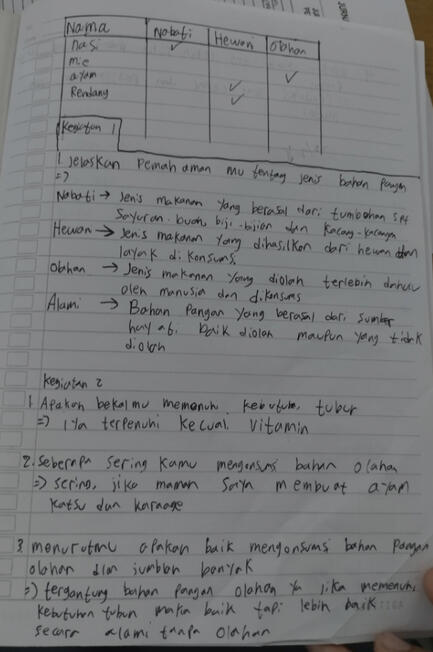 Nama Nabati Hewani Olahan
nasi ✓
mie ✓
ayam ✓
Rendang ✓
Kegiatan 1
1. Jelaskan Pemahaman mu tentang jenis bahan Pangan
=>
Nabati → Jenis makanan yang berasal dari tumbuhan spt
Sayuran. buah, biji-bijian dan Kacang-kacangan
Hewan → Jenis makanan yang dihasilkan dari hewan dan
layak di konsumsi
Olahan → Jenis makanan yang diolah terlebih dahulu
oleh manusia dan dikonsums
Alami → Bahan Pangan yang berasal dari sumber
hayati baik diolah maupun yang tidak
diolah
Kegiatan 2
1. Apakah bekalmu memenuhi kebutuhan tubuh
=> Iya terpenuhi kecuali vitamin
2. Seberapa sering kamu mengonsums bahan olahan
=> sering, jika maman saya membuat ayam
Katsu dan karaage
3. menurutmu apakah baik mengonsums bahan Pangan
olahan dlm jumlah banyak
=> tergantung bahan pangan olahan ya jika memenuhi
kebutuhan tubuh maka baik tapi lebih baik
secara alami tanpa olahan